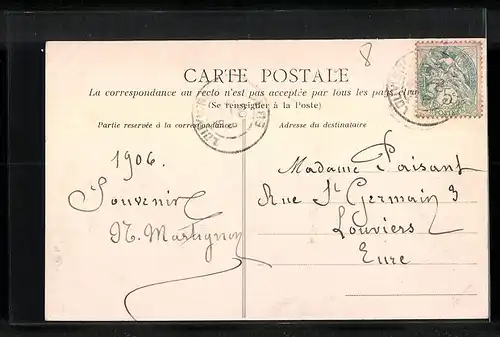 8
CARTE POSTALE
La correspondance au recto n'est pas acceptée par tous les pays étra
(Se renseigner à la Poste)
Partie réservée à la correspondance
Adresse du destinataire
1906.
Souvenir
Madame Paisant
Rue St Germain 3
Louviers
Eure